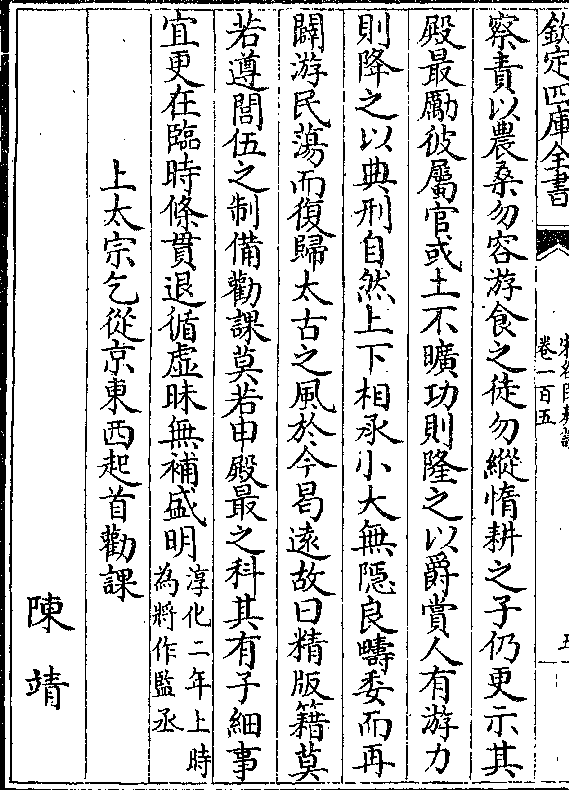 欽定四庫全書
卷一百五
察責以農桑勿容游食之徒勿縱惰耕之子仍更示其
殿最勵彼屬官或土不曠功則隆之以爵賞人有游力
則降之以典刑自然上下相承小大無隱良疇委而再
闢游民蕩而復歸太古之風於今曷遠故曰精版籍莫
若遵閭伍之制備勸課莫若申殿最之科其有子細事
宜更在臨時條貫退循虛昧無補盛明
淳化二年上時
為將作監丞
上太宗乞從京東西起首勸課
陳靖